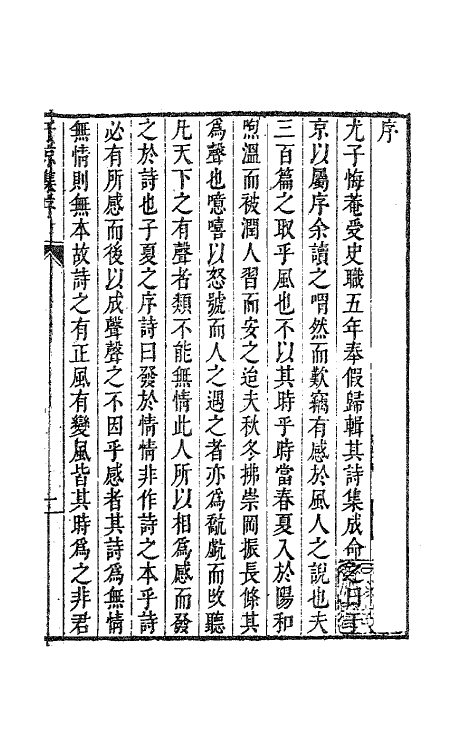 序
尤子悔菴受史職五年奉假歸輯其詩集成命之曰于
京以屬序余讀之喟然而歎竊有感於風人之說也夫
三百篇之取乎風也不以其時乎時當春夏入於陽和
煦溫而被潤人習而安之迨夫秋冬拂崇岡振長條其
爲聲也噫嘻以怒號而人之遇之者亦爲觳觫而改聽
凡天下之有聲者類不能無情此人所以相爲感而發
之於詩也子夏之序詩曰發於情情非作詩之本乎詩
必有所感而後以成聲聲之不因乎感者其詩爲無情
無情則無本故詩之有正風有變風皆其時爲之非君
于京集序
一